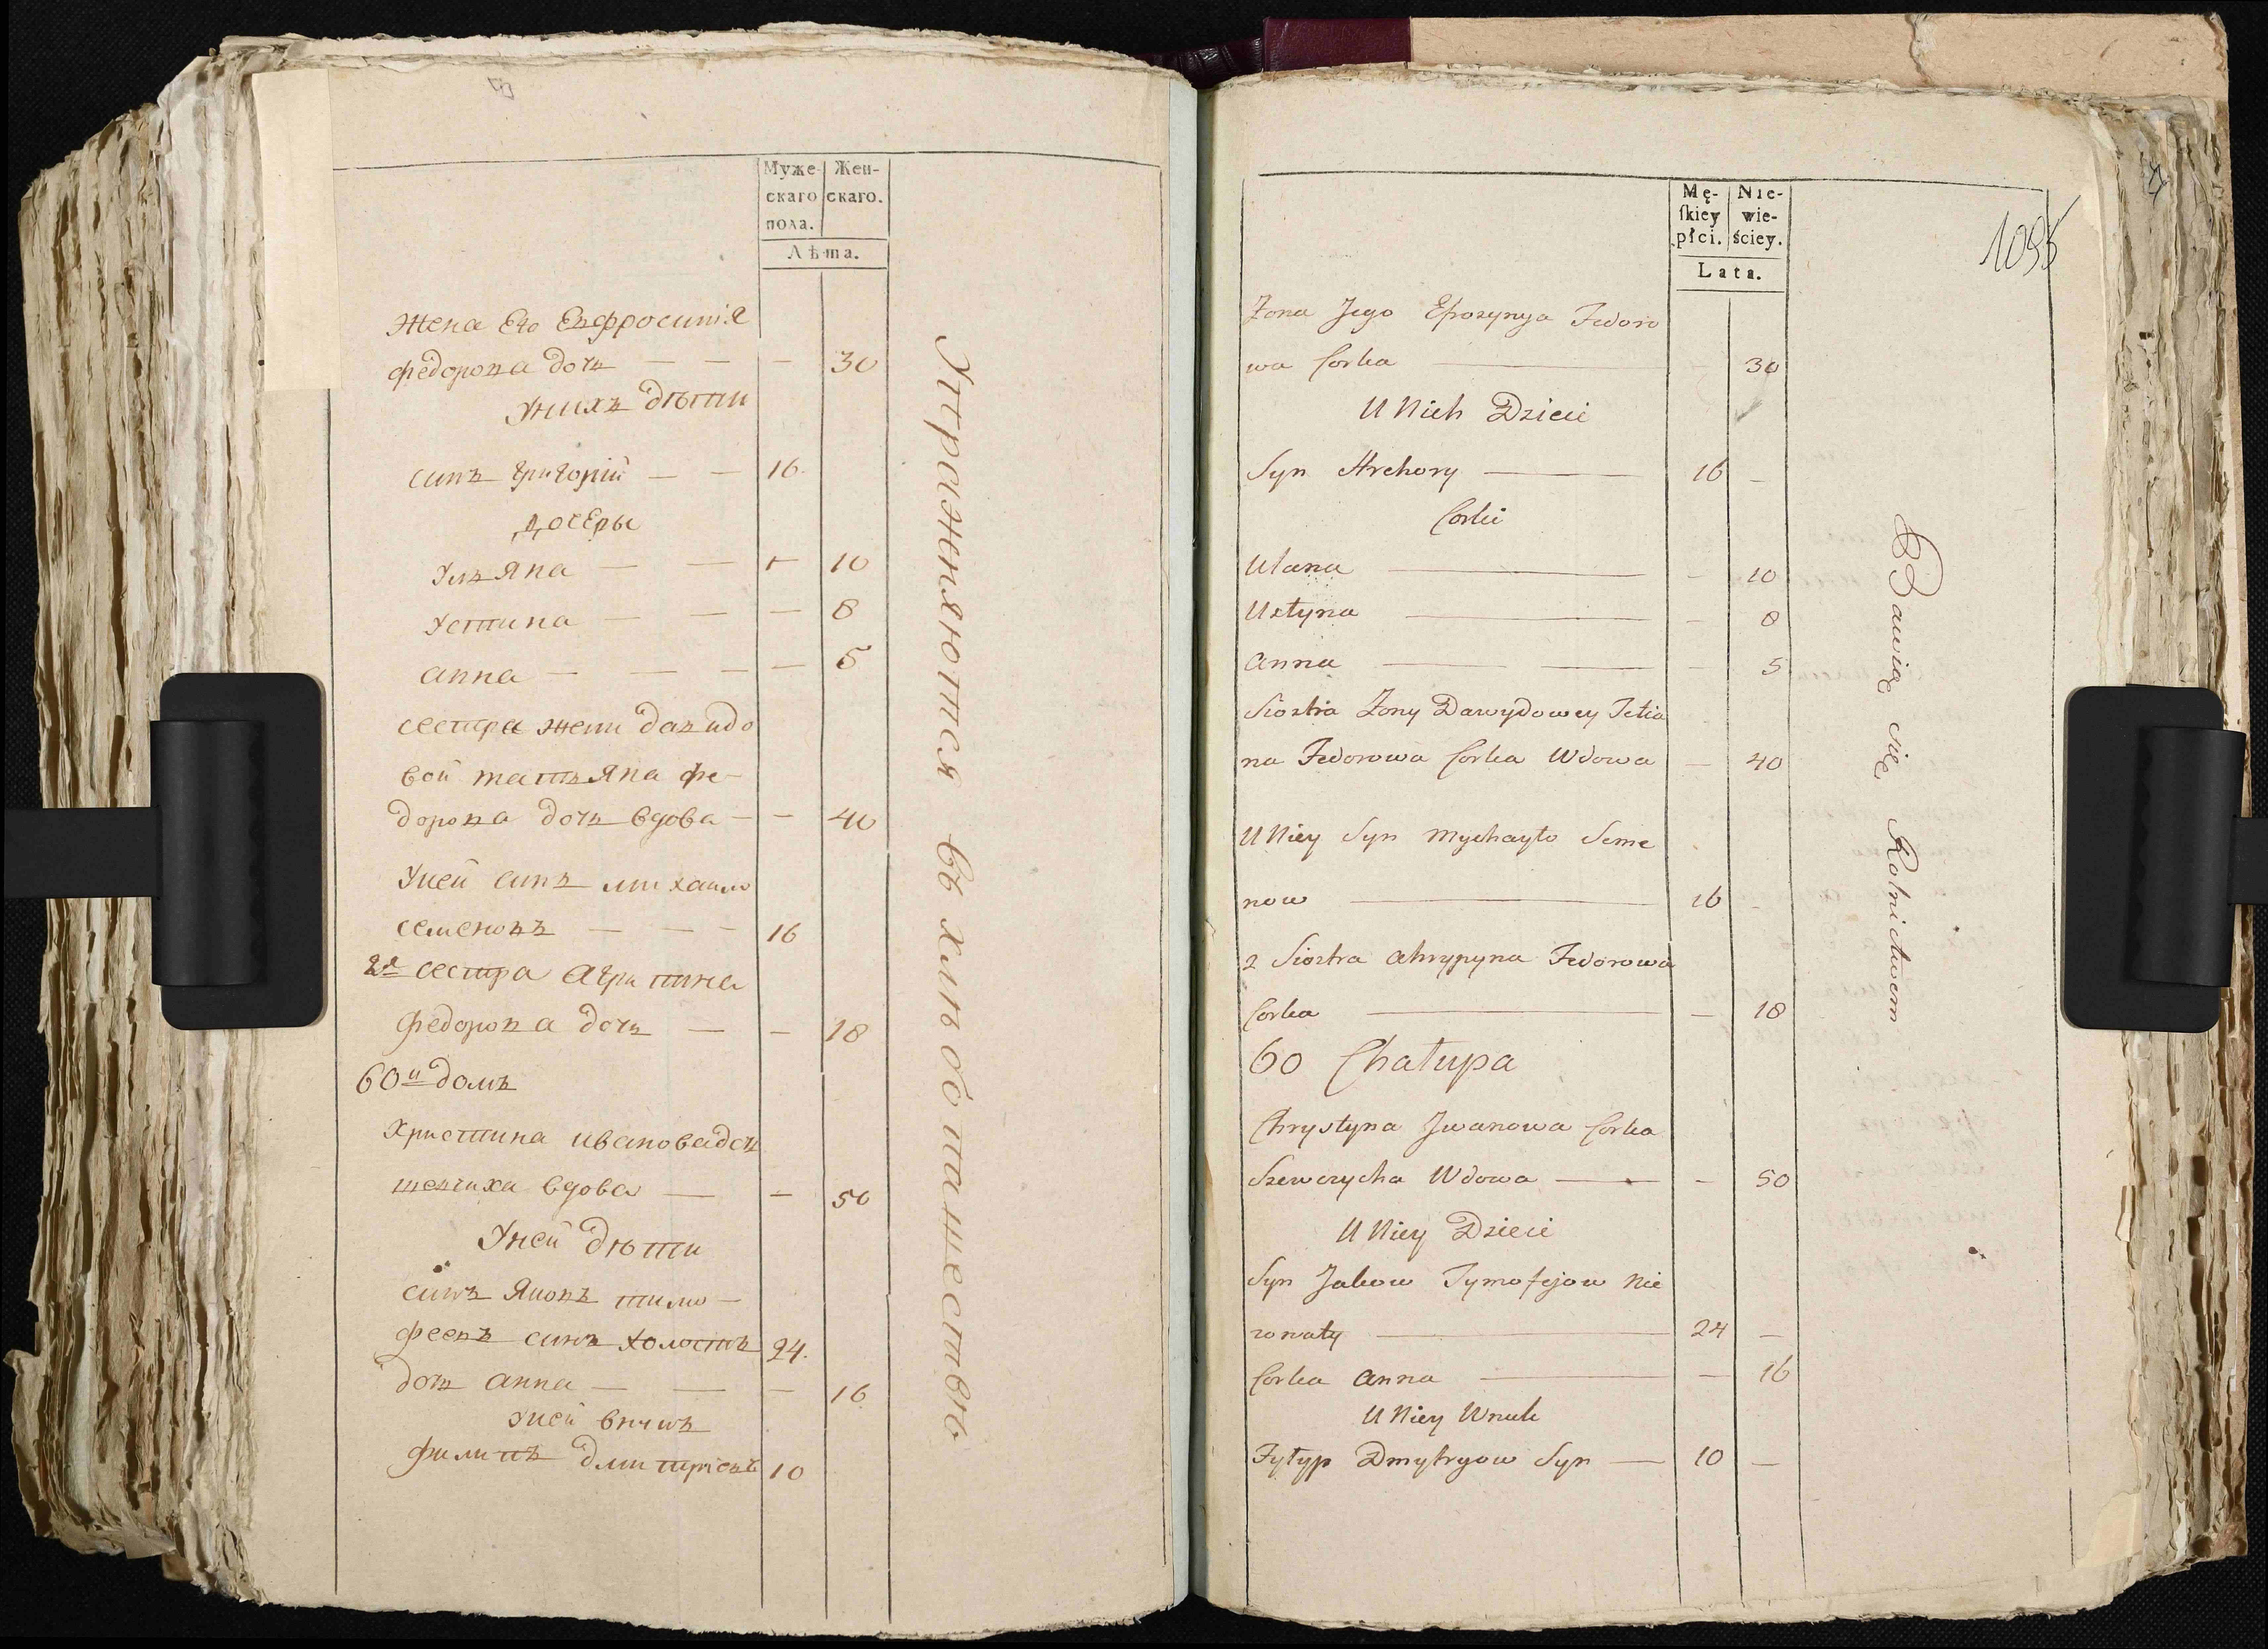 Муже-
скаго
пола.
Жен-
скаго.
Лѣта.
Жена Его Евфросинія
федорова дочь — — — 30
У нихъ дѣти
синъ григорій — — 16
Дочеры
Ульяна — — — 10
Устина — — — 8
анна — — — — 5
сестра жени давидо
вой татьяна фе-
дорова дочь вдова — — 40
У ней синъ михаило
семеновъ — — — 16
2я сестра агрипина
федорова дочь — — 18
60й домъ
Христина ивановa дочь
шевчиха вдова — — 50
У ней дѣти
синъ Яковъ тимо-
феевъ синъ холостъ 24.
дочь анна — — — 16
У ней внукъ
филипъ дмитріевъ 10
Упражняются въ хлѣбопашествѣ
1095
Mę-
ſkiey
płci.
Nie-
wie-
ściey.
Lata.
Żona Jego Efrozynya Fedoro
wa Corka — — 30
U Nich Dzieci
Syn Hrehory — 16 —
Corki
Ulana — — 10
Ustyna — — 8
Anna — — — 5
Siostra Żony Dawydowey Tetia
na Fedorowa Corka Wdowa — 40
U Niey Syn Mychayło Seme
now — 16 —
2 Siostra Ahrypyna Fedorowa
Corka — — 18
60 Chałupa
Chrystyna Jwanowa Corka
Szewczycha Wdowa — — 50
U Niey Dzieci
Syn Jakow Tymofejow Nie
zonaty — 24 —
Corka Anna — — 16
U Niey Wnuk
Fyłyp Dmytryow Syn — 10 —
Bawią się Rolnictwem